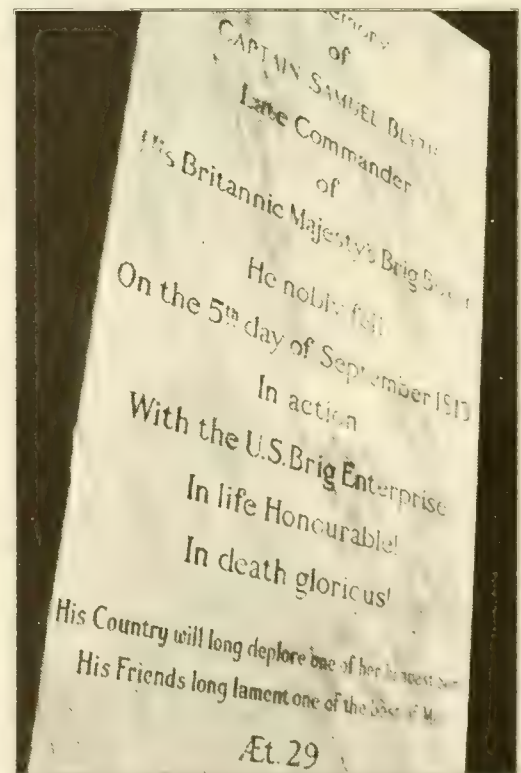 of
CAPTAIN SAMUEL BLYTH
Late Commander
of
His Britannic Majesty's Brig
He nobly fell
On the 5th day of September 1813
In action
With the U.S. Brig Enterprise
In life Honourable!
In death glorious!
His Country will long deplore one of her bravest
His Friends long lament one of the best of
Æt. 29